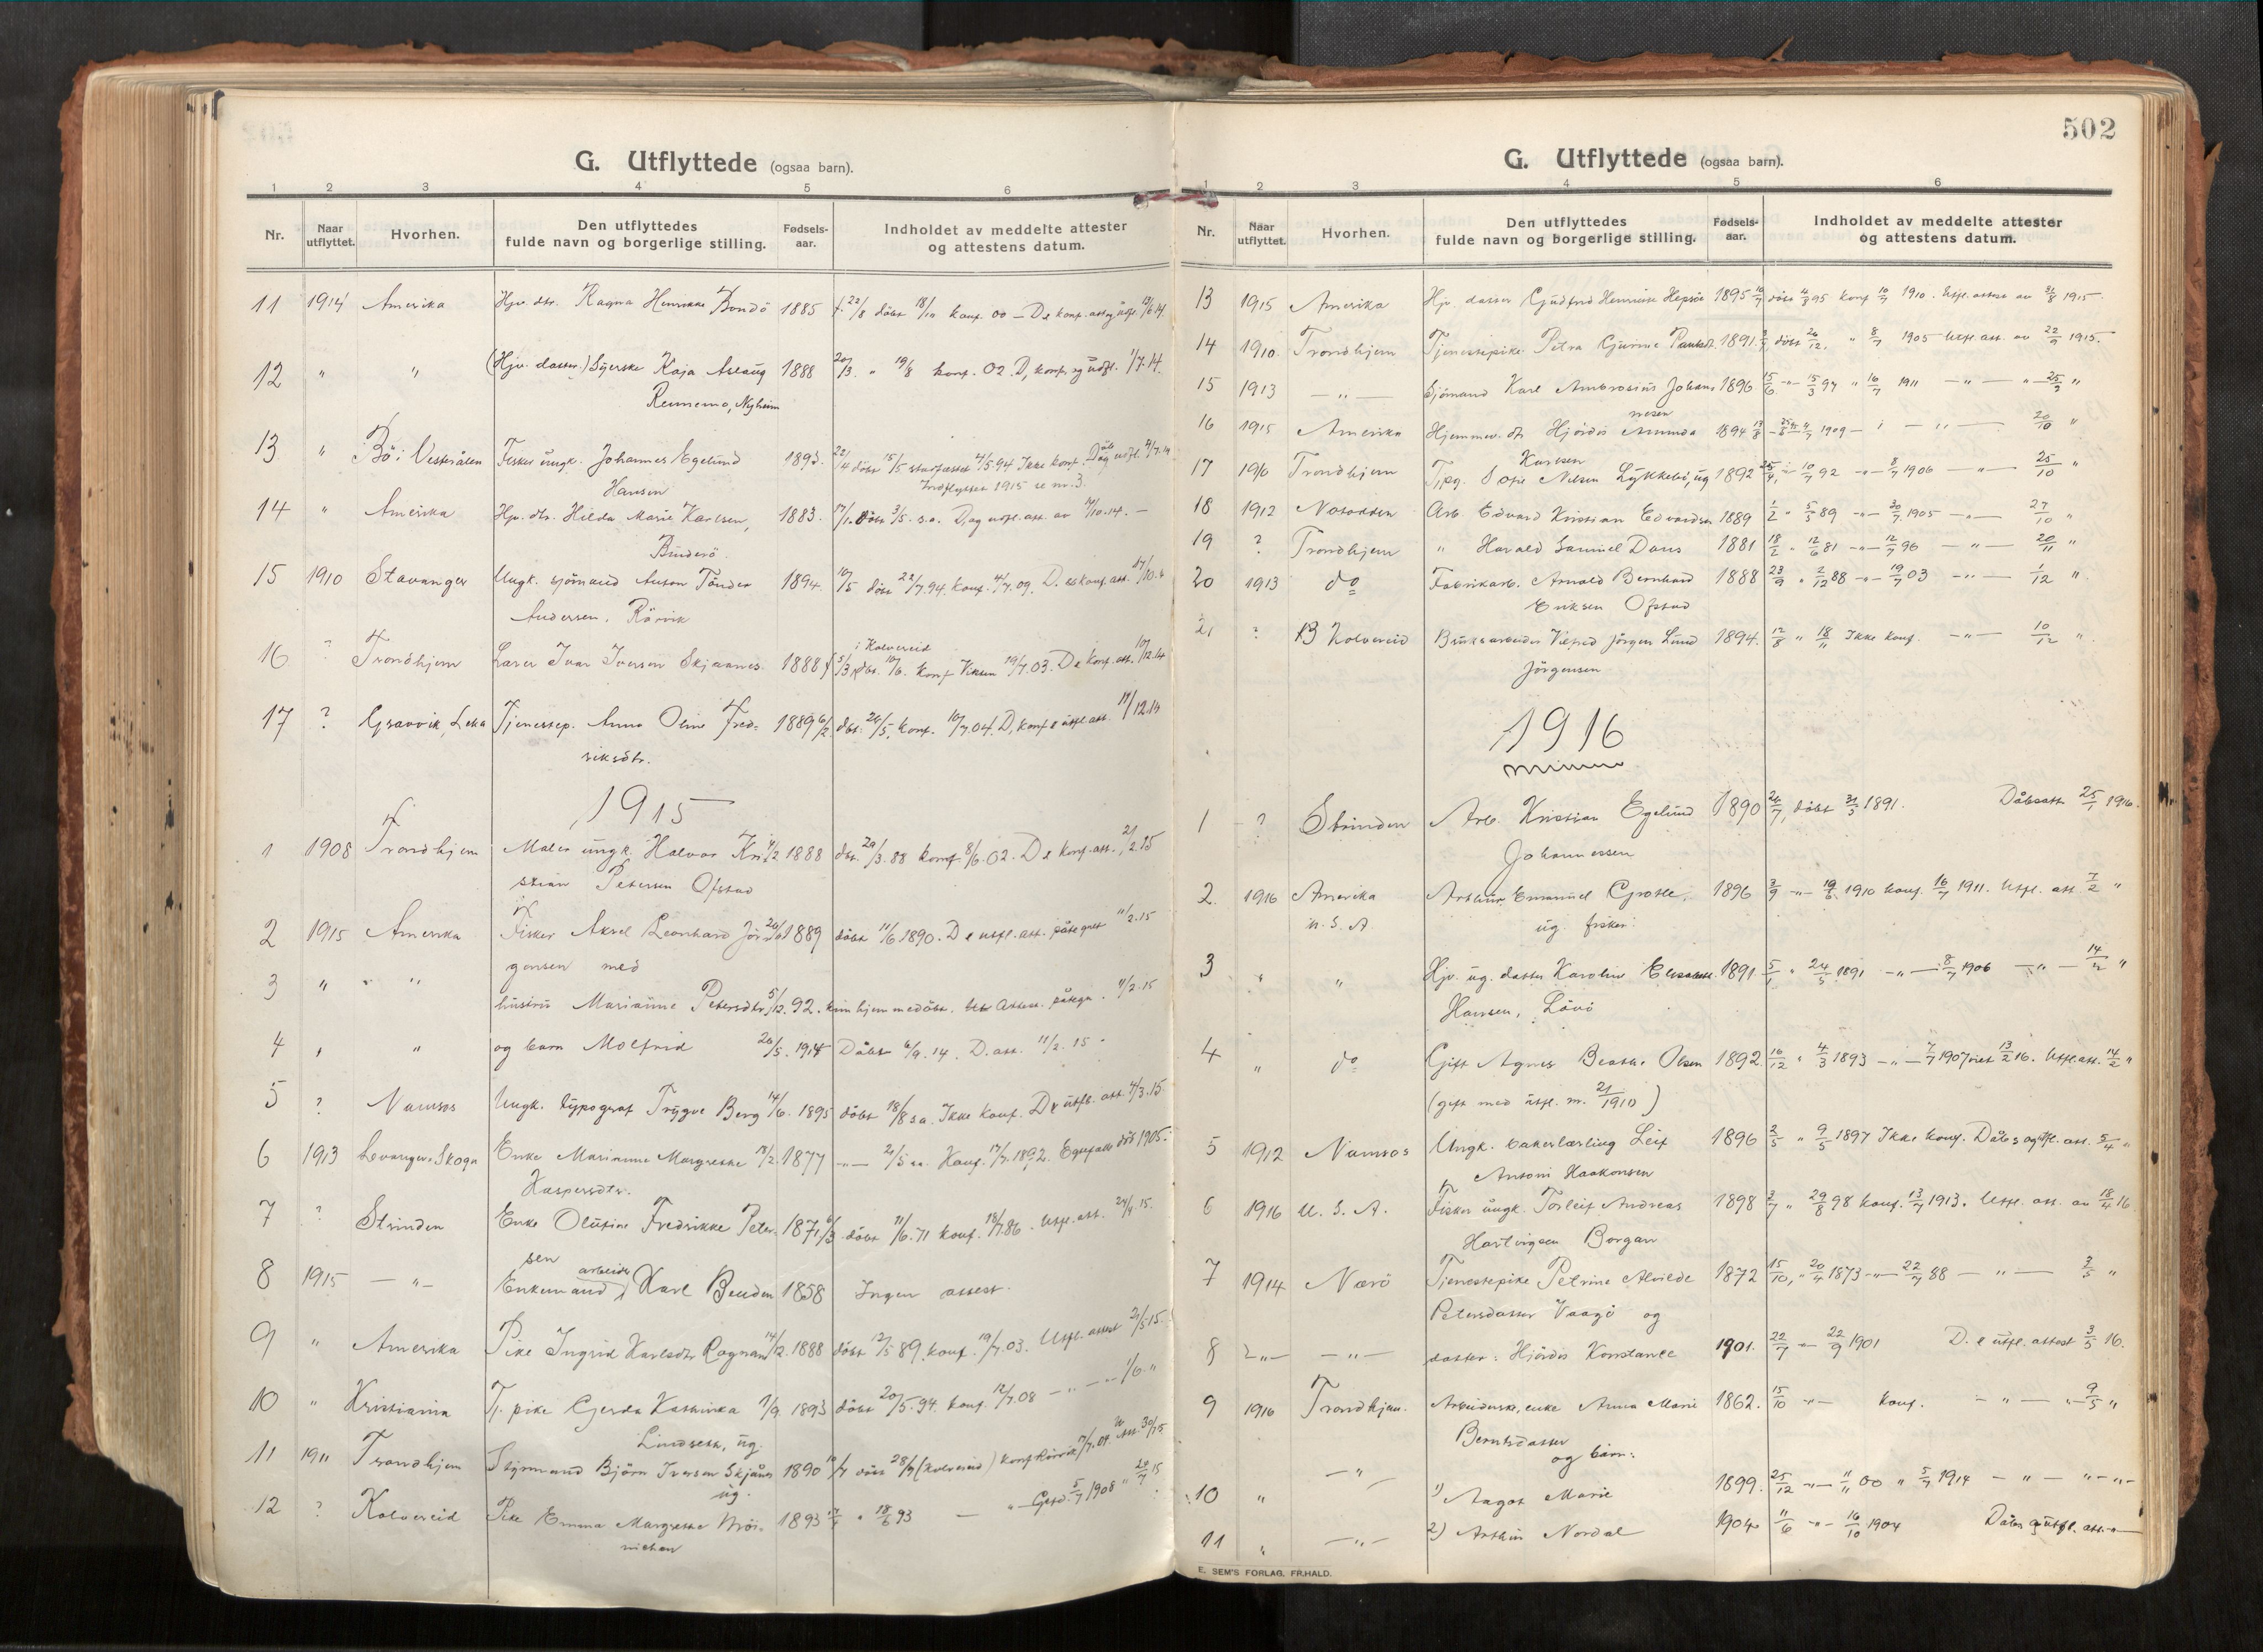 G. Utflyttede (ogsaa barn).
1 2 3 4 5 6
Nr. Naar utflyttet. Hvorhen. Den utflyttedes fulde navn og borgerlige stilling. Fødsels-aar. Indholdet av meddelte attester og attestens datum.
11 1914 Amerika Hjv. dtr. Ragna Henrikke Bondö 1885 f. 22/8 döbt 18/10 konf. 00 – D & konf. att. og utfl. 13/6 14.
12 " " (Hjv. datter.) Syerske Kaja Aslaug 1888 20/3. " 19/8 konf. 02. D, konf. og utfl. 1/7.14.
Rennemo, Nyheim
13 " Bö i Vesterålen Fisker ungk. Johannes Egelund 1893. 22/4 döbt 15/5 stadfæstet 4/5 94 Ikke konf. Dåb og utfl. 4/7.14
Hansen Indflyttet 1915 se nr. 3.
14 " Amerika Hjv. dtr. Hilda Marie Karlsen, 1883. 17/1. döbt 3/5. s.a. D. og utfl. att. av 7/10.14. –
Binderö
15 1910 Stavanger Ungk. sjömand Anton Tönder 1894. 10/5 döbt 22/7.94. konf. 4/7.09. D. & konf. att.
Andersen, Rörvik
16 ? Trondhjem Lærer Ivar Iversen Skjaanes. 1888 f. 5/3 döbt. 10/6. i Kolvereid konf Vikten 19/7.03. D & konf. att. 10/12.14
17 ? Gravvik, Leka Tjenestep. Anna Oline Fred- 1889 6/2. dbt. 26/5. konf. 10/7.04. D, konf & utfl. att. 17/12.14
riksdtr.
1915
1 1908 Trondhjem Maler ungk. Halvor Kri- 4/2 1888 dbt. 29/3.88 konf. 8/6.02. D & konf. att. 2/2.15
stian Petersen Ofstad
2 1915 Amerika Fisker Aksel Leonhard Jör- 1889 döbt 11/6 1890. D & utfl. att. påtegnet 11/2.15
gensen med
3 " " " hustru Marianne Petersdtr. 5/12.92. kun hjemmedöbt. Attest. påtegn. 11/2.15
4 " " og barn Molfrid 26/5. 1914 Döbt 6/9.14. D. att. 11/2.15
5 ? Namsos Ungk. typograf Trygve Berg 14/6. 1895 döbt 18/8 s.a. Ikke konf. D & utfl. att. 4/3.15
6 1913 Levanger, Skogn Enke Marianne Margrethe 13/2.1877 –"– 21/5 s.a. Konf. 17/7.1892. Egtefælle död 1905.
Kaspersdtr.
7 ? Strinden Enke Olufine Fredrikke Peter- 1871 6/3 döbt 11/6.71 konf. 18/7.86. Utfl. att. 24/4.15.
sen
8 1915 –"– Enkemand arbeider Karl Benden 1858 Ingen attest.
9 " Amerika Pike Ingrid Karlsdtr Rognan 14/12.1888 döbt 12/5 89. konf. 19/7.03. Utfl. attest 21/5.15.
10 " Kristiania Tj. pike Gjerda Kathinka 7/9. 1893 döbt 20/5.94. konf. 12/7.08 –"– –"– 1/6."
Lindseth, ug.
11 1911 Trondhjem Styrmand Björn Iversen Skjånes 1890 10/4 döbt 28/9 (Kolvereid) konf Rörvik 17/7.04. att. 30/7 15
ug.
12 ? Kolvereid Pike Emma Margrethe Mör- 1893 " 18/6 93 – "– Gard. 5/7 1908 " 20/7 15
nichen
502
G. Utflyttede (ogsaa barn).
1 2 3 4 5 6
Nr. Naar utflyttet. Hvorhen. Den utflyttedes fulde navn og borgerlige stilling. Fødsels-aar. Indholdet av meddelte attester og attestens datum.
13 1915 Amerika Hjv. datter Gjudfrid Henrikke Hepsöe 1895 10/7 döbt 4/8 95 konf 10/7 1910. Utfl. attest av 31/8 1915.
14 1910. Trondhjem Tjenestepike Petra Gjurine Paulsdt. 1891. döbt 26/12. " 8/7 1905 Utfl. att. av 22/9 1915.
15 1913 –"– Sjömand Karl Ambrosius Johan- 1896 15/6 –"– 15/3 97 " 16/7 1911 –"– "– 25/9 "
nesen
16 1915 Amerika Hjemmev. dtr Hjördis Amunda 1894 13/8 4/7 1909 – " –"– 20/10 "
Karlsen
17 1910 Trondhjem Tjpg. Sofie Nilsen Lykkebö, ug 1892 25/4. " 10/7 92 –"– 8/7 1906 –"– 25/10 "
18 1912 Notodden Arb. Edvard Kristian Edvardsen 1889 1/2 " 5/5 89 –"– 30/7. 1905 –"– 27/10 "
19 ? Trondhjem " Harald Samuel Daus 1881 18/2 " 12/6 81 –"– 12/7 96 –"– 20/11 "
20 1913 do Fabrikarb. Arnold Bernhard 1888 23/9 " 2/12 88 –"– 19/7 03 –"– 1/12 "
Eriksen Ofstad
21 ? Kolvereid Bruksarbeider Vilfred Jörgen Lund 1894. 12/8 " 18/11 Ikke konf. –"– 10/12 "
Jörgensen
1916
1 ? Strinden Arb. Kristian Egelund 1890 24/7, döbt 31/5 1891. Dåbsatt. 25/1 1916.
Johannessen
2. 1916 Amerika Arthur Emanuel Grötte, 1896 3/9 –"– 19/6. 1910 konf. 16/7 1911. Utfl. att. 7/2 "
U. S. A. ug. fisker.
3 " " Hjv. ug. datter Karoline Elisabeth. 1891 5/1 " 24/5 1891 –"– 8/7 1906 –"– 14/2 "
Hansen, Lövö
4 " do Gift Agnes Beathe Olsen 1892 16/12 " 4/3 1893 –"– 7/7 1907 viet 13/2 16. Utfl. att. 14/2 "
(gift med utfl. nr. 21/1910)
5 1912 Namsos Ungk. bakerlærling Leif 1896 2/5 " 9/5 1897 Ikke konf. Dåbs og utfl. att. 5/4 "
Antoni Haakonsen
6 1916 U. S. A. Fisker ungk. Torleif Andreas 1898 3/7 " 29/8 98 konf. 13/7 1913. Utfl. att. av 18/4 16
Hartvigsen Borgan
7 1914 Nærö Tjenestepike Petrine Alvilde 1872 15/10, " 20/4 1873 –"– 22/7 88 –"– 3/5 "
Petersdatter Vaagö og
8 –"– –"– datter: Hjördis Konstanse 1901. 22/7 –"– 22/9 1901 D. & utfl. attest 3/5 16.
9 1916 Trondhjem. Arbeiderske, enke Anna Marie 1862. 15/10 –"– konf. –"– "– 9/5 "
Berntsdatter
og barn:
10 " –"– 1) Aagot Marie 1899. 25/12 –"– 11/11 00 " 5/7 1914 –"– "–"–
11 " –"– 2) Arthur Nordal 1904 11/6 –"– 16/10 1904 Dåbs & utfl. att. –"–
E. SEM'S FORLAG, FR.HALD.